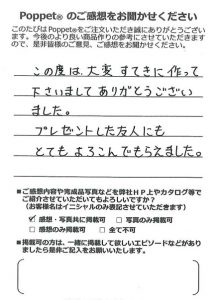 Poppet® のご感想をお聞かせください
このたびはPoppet®をご注文いただき誠にありがとうござい
ます。今後のより良い商品作りの参考にさせていただきます
ので、是非皆様のご意見、ご感想をお聞かせください。
この度は、大変 すてきに作って
下さいまして ありがとうござい
ました。
プレゼントした友人にも
とてもよろこんでもらえました。
■ご感想内容や完成品写真などを弊社HP上やカタログ等で
ご紹介させていただいてもよろしいですか？
(お客様名はイニシャルのみ表記させていただきます)
☑ 感想・写真共に掲載可 □ 写真のみ掲載可
□ 感想のみ掲載可 □ 全て不可
■掲載可の方は、一緒に掲載して欲しいエピソードなどがあり
ましたら是非ご記入をお願いいたします。